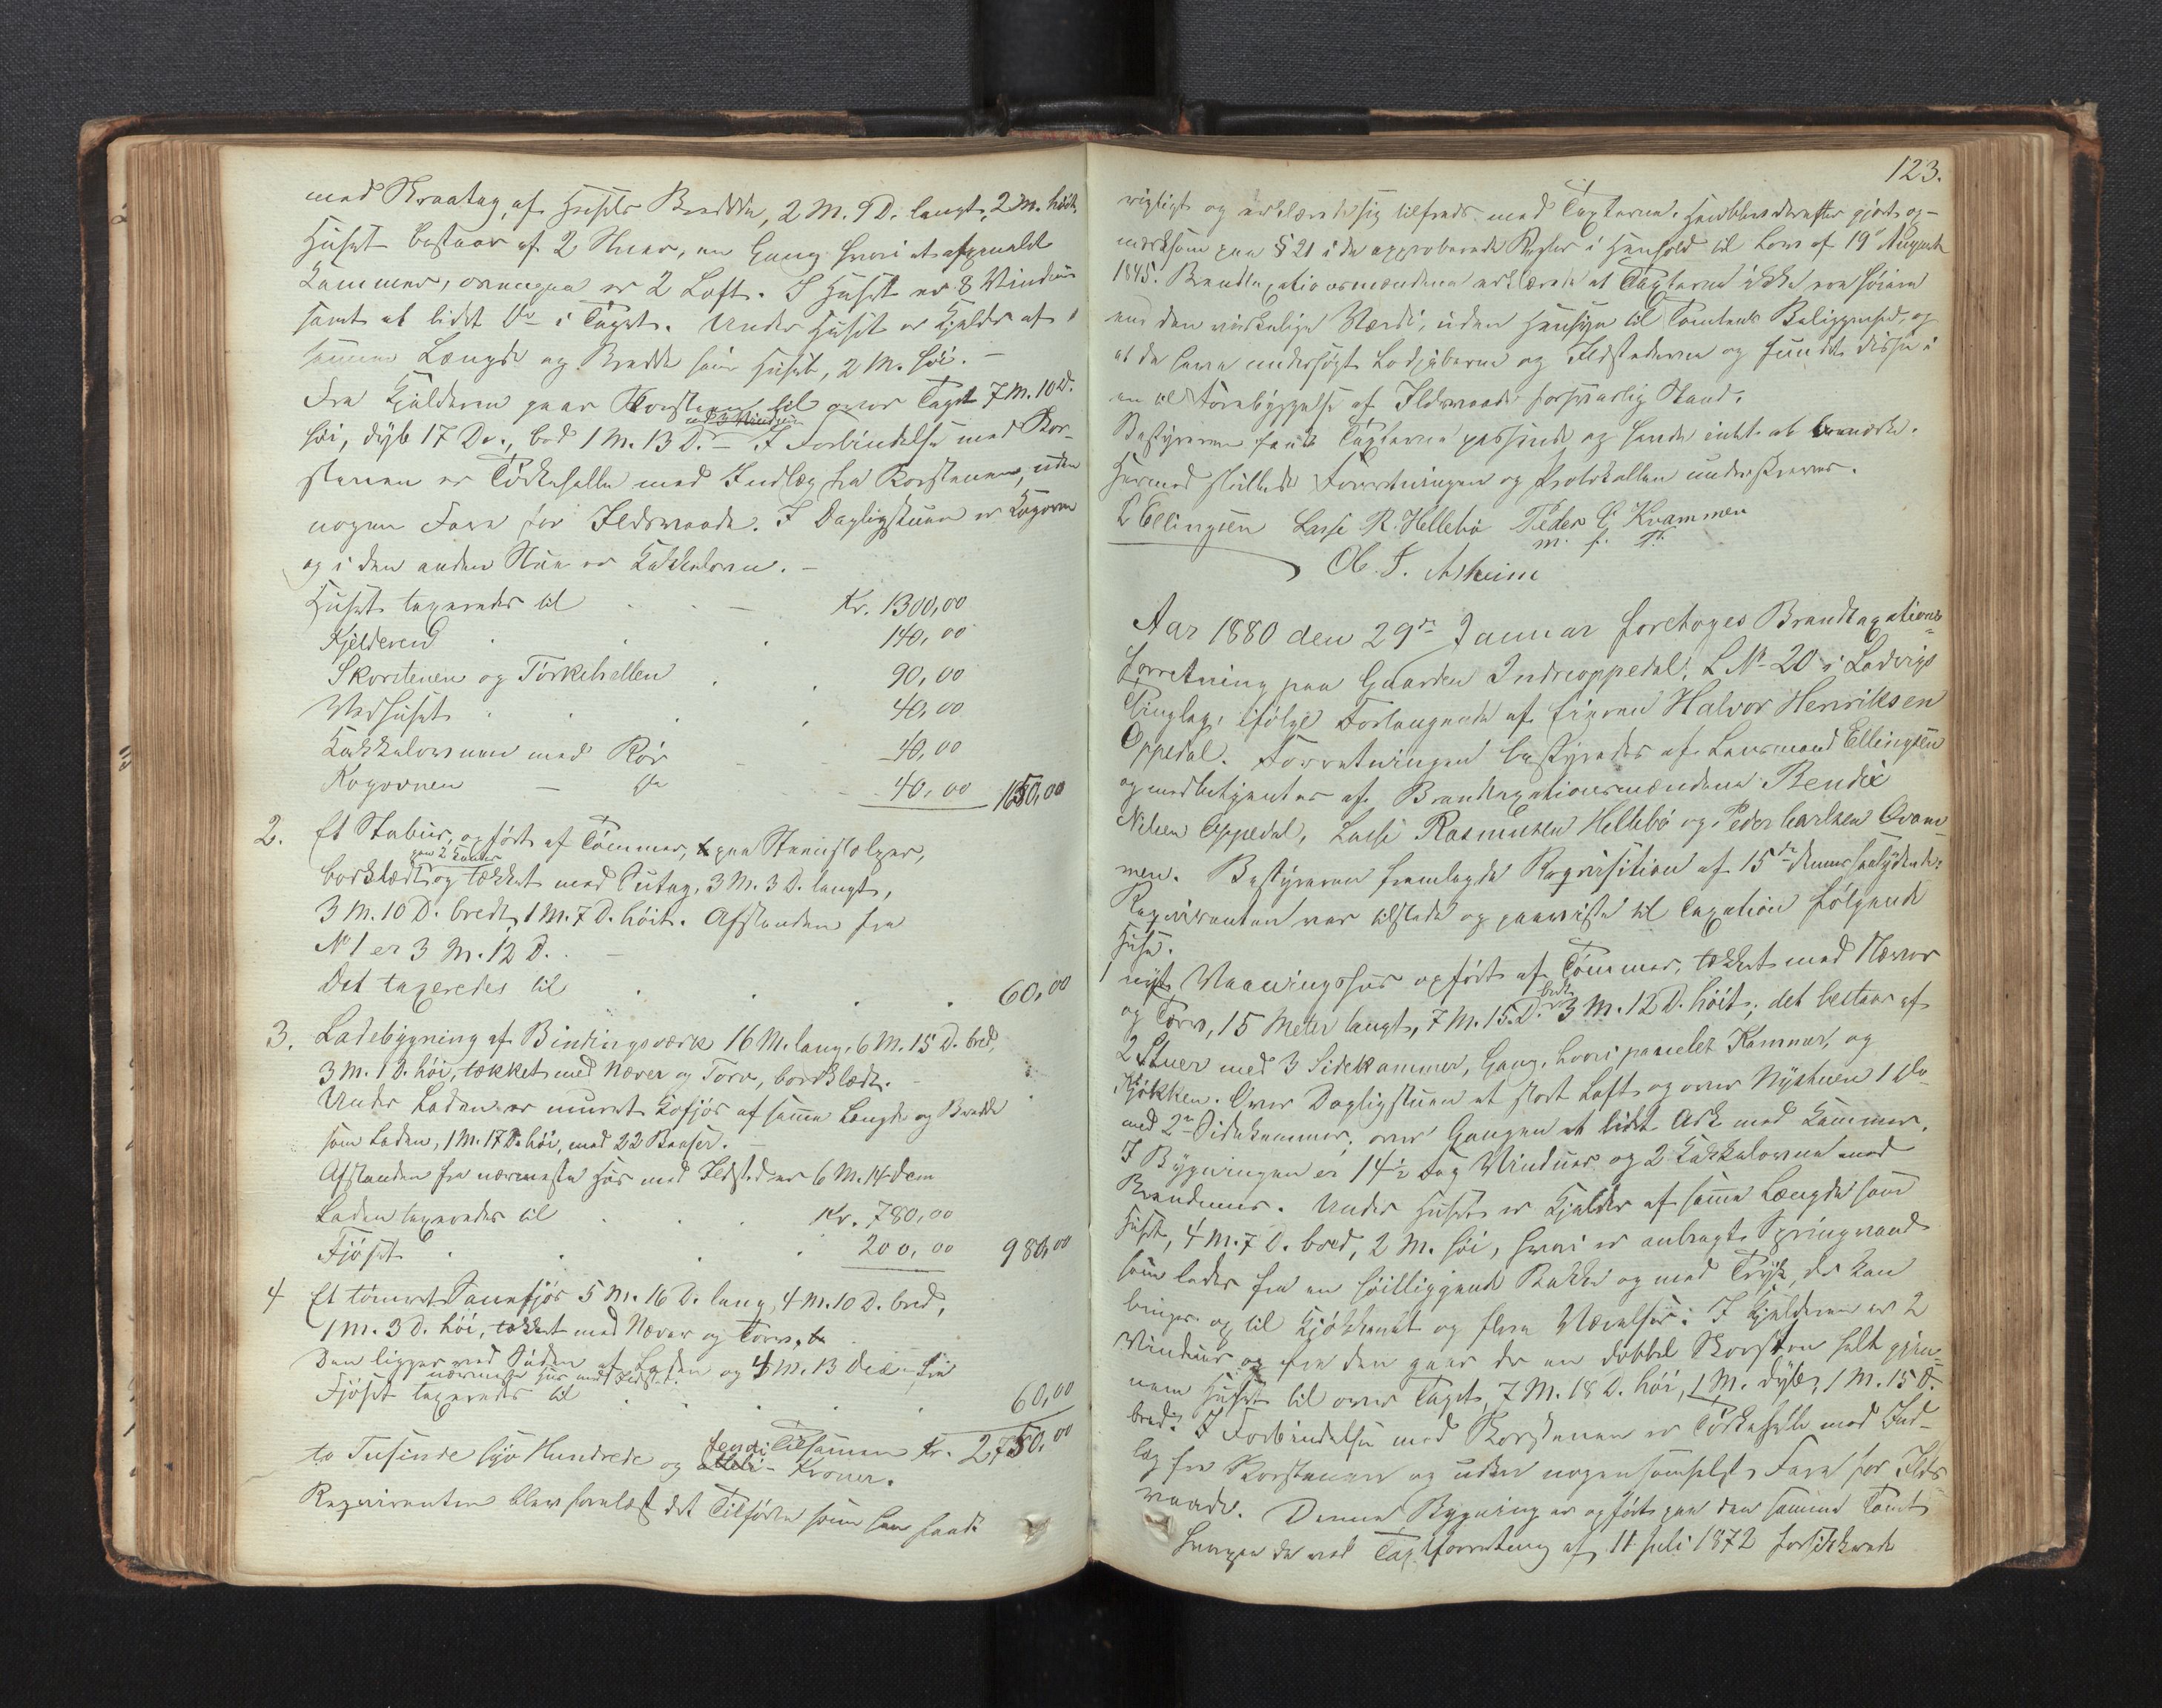 med Skraatag, af Husets Bredde, 2 M. 9 D. langt, 2 M. høit.
Huset bestaar af 2 Stuer, en Gang hvori et afpanelet
Kammer, ovenpaa er 2 Loft. I Huset er 8 Vinduer
samt et lidet Do i Taget. Under Huset er Kjelder af
samme Længde og Bredde som Huset, 2 M. høi. –
Fra Kjelderen gaar Skorsteen til over Taget 7 M. 10 D.
høi, dyb 17 De., bred 1 M. 13 D. – I Forbindelse med Skor-
stenen er Törkehelle med Indlæg fra Skorstenen, uden
nogen Fare for Ildsvaade. I Dagligstuen er Kogovn
og i den anden Stue er Kakkelovn. –
Huset taxeredes til Kr. 1300,00
Kjelderen 140,00
Skorstenen og Törkehellen 90,00
Vedhuset 40,00
Kakkelovnen med Rör 40,00
Kogovnen – do 40,00 1650,00
2. Et Stabur, opført af Tömmer, paa Steenstolper,
paa 2 Kanter
bordklædt og tækket med Sutag, 3 M. 3 D. langt,
3 M. 10 D. bredt, 1 M. 7 D. höit. Afstanden fra
No 1 er 3 M. 12 D. –
Det taxeredes til 60,00
3. Ladebygning af Bindingsværk 16 M. lang, 6 M. 15 D. bred,
3 M. 1 D. höi, tækket med Næver og Torv, bordklædt. –
Under Laden er muret Kofjös af samme Længde og Bredde
som Laden, 1 M. 17 D. höi, med 22 Baaser. –
Afstanden fra nærmeste Hus med Ildsted er 6 M. 14 Dem
Laden taxeredes til Kr. 780,00
Fjöset 200,00 980,00
4 Et tömret Sauefjös 5 M. 16 D. lang, 4 M. 10 D. bred,
1 M. 3 D. höi, tækket med Næver og Torv.
Den ligger ved Siden af Laden og 4 M. 13 Dec. fra
nærmeste Hus med Ildsted.
Fjöset taxeredes til 60,00
Tilsammen Kr. 2,750,00
to Tusinde syv Hundrede og femti Kroner.
Reqvirenten blev forelæst det Tilførte som han fandt
123.
rigtigt og erklærede sig tilfreds med Taxterne. Han blev derefter gjort op-
mærksom paa § 21 i de approberede Regler i Henhold til Lov af 19de August
1845. Brandtaxationsmændene erklærede at Taxterne ikke ere høiere
end den virkelige Værdi, uden Hensyn til Tomtens Beliggenhed, og
at de have undersögt Lodpiberne og Ildstederne og fundet disse i
en til Forebyggelse af Ildsvaade forsvarlig Stand.
Bestyreren fandt Taxterne passende og havde intet at bemærke.
Hermed sluttede Forretningen og Protokollen underskreves.
L Ellingsen Lasse R. Hellebö Peder C. Kvammen
m. f. P.
Ol. J. Asheim
Aar 1880 den 29de Januar foretoges Brandtaxations-
forretning paa Gaarden Indreoppedal, L No 20 i Ladvigs
Thinglag, ifölge Forlangende af Eieren Halvor Henriksen
Oppedal. Forretningen bestyredes af Lensmand Ellingsen
og meddeltjentes af Brandtaxationsmændene Bendix
Nilsen Oppedal, Lasse Rasmusen Hellebö og Peder Carlsen Qvam-
men. Bestyreren fremlagde Reqvisition af 15de dennes saalydende:
Reqvirenten var tilstede og paaviste til Taxation fölgende
Huse.
1 nyt Vaaningshus opfört af Tömmer, tækket med Næver
bredt
og Torv, 15 Meter langt, 7 M. 15 D. 3 M. 12 D. höit; det bestaar af
2 Stuer med 3 Sidekammer, Gang, hvori panelet Kammer, og
Kjökken. Over Dagligstuen et stort Loft og over Nystuen 1 do
med 2de Sidekammer, over Gangen et lidet Ark med Kammer.
I Bygningen er 14½ Fag Vinduer og 2 Kakkelovne med
Brandmur. Under Huset er Kjelder af samme Længde som
Huset, 4 M. 7 D. bred, 2 M. høi, hvori er anbragt Springvand
som ledes fra en höitliggende Bakke og med Tryk, der kan
bringes op til Kjökkenet og flere Værelser. I Kjelderen er 2
Vinduer og fra den gaar der en dobbel Skorsten helt gjen-
nem Huset til over Taget, 7 M. 18 D. höi, 1 M. dyb, 1 M. 15 D.
bred. I Forbindelse med Skorstenen er Törkehelle med Ind-
læg fra Skorstenen og uden nogensomhelst Fare for Ilds-
vaade. Denne Bygning er opfört paa den samme Tomt
hvorpaa de ved Taxtforretning af 11 Juli 1872 forsikkrede